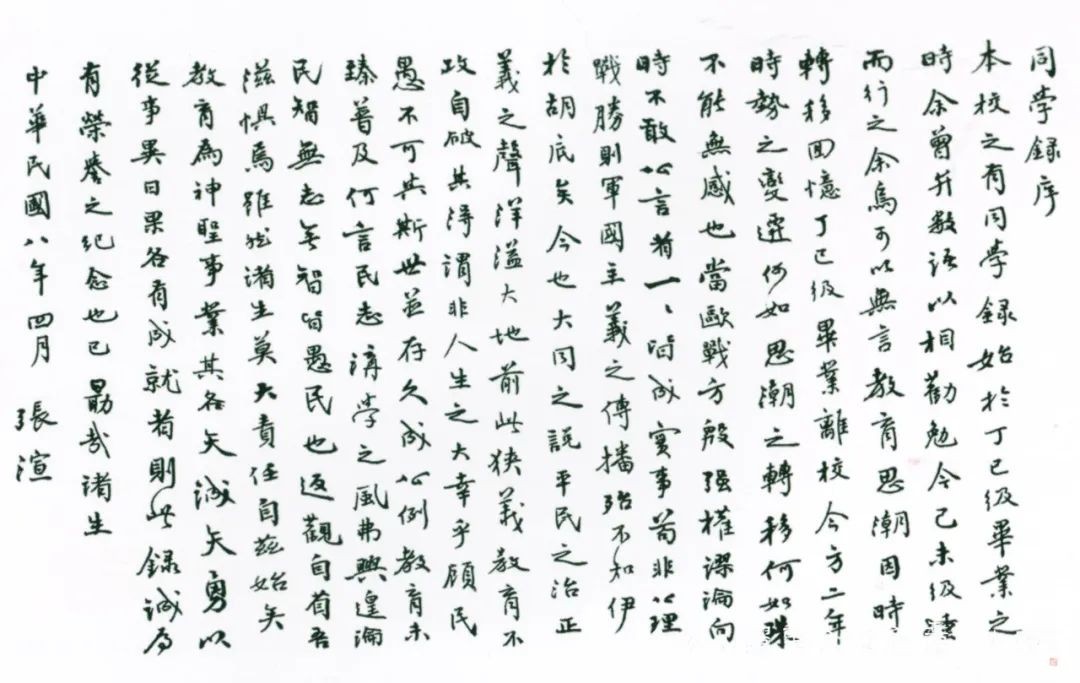 同學録序
本校之有同學録始於丁巳級畢業之
時余曾弁數語以相勸勉今己未級
而行之余烏可以無言教育思潮因時
轉移回憶丁巳級畢業離校今方二年
時勢之變遷何如思潮之轉移何如殊
不能無感也當歐戰方殷强權謬論向
時不敢公言者一、皆成實事苟非公理
戰勝則軍國主義之傳播殆不知伊
於胡底矣今也大同之説平民之治正
義之聲洋溢大地前此狹義教育不
攻自破其得謂非人生之大幸乎顧民
愚不可與斯世並存久成公例教育未
臻普及何言民志講學之風弗興遑論
民智無志無智皆愚民也返觀自省吾
滋懼焉雖然諸生莫大責任自兹始矣
教育為神聖事業其各矢誠矢勇以
從事異日果各有成就者則此録誠為
有榮譽之紀念也已勗哉諸生
中華民國八年四月 張渲